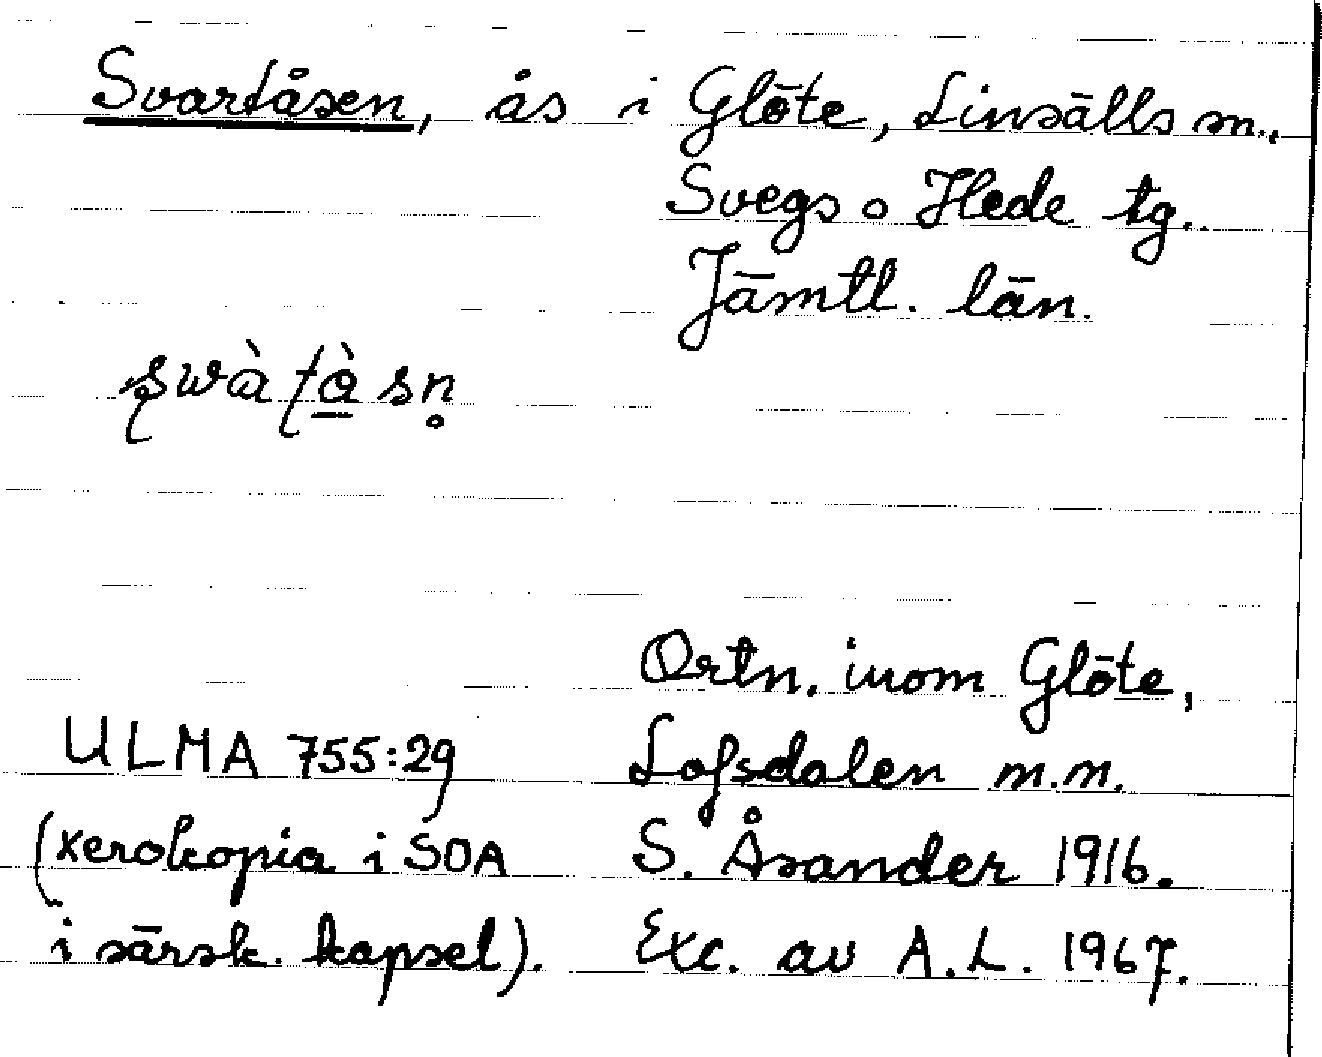 Svartåsen, ås i Glöte, Linsälls sn.,
Svegs o Hede tg.
Jämtl. län.
ʂwàʈà̱sṇ
Ortn. inom Glöte,
ULMA 755:29 Lofsdalen m.m.
(xerokopia i SOA S. Åsander 1916.
i särsk. kapsel). Exc. av A.L. 1967.